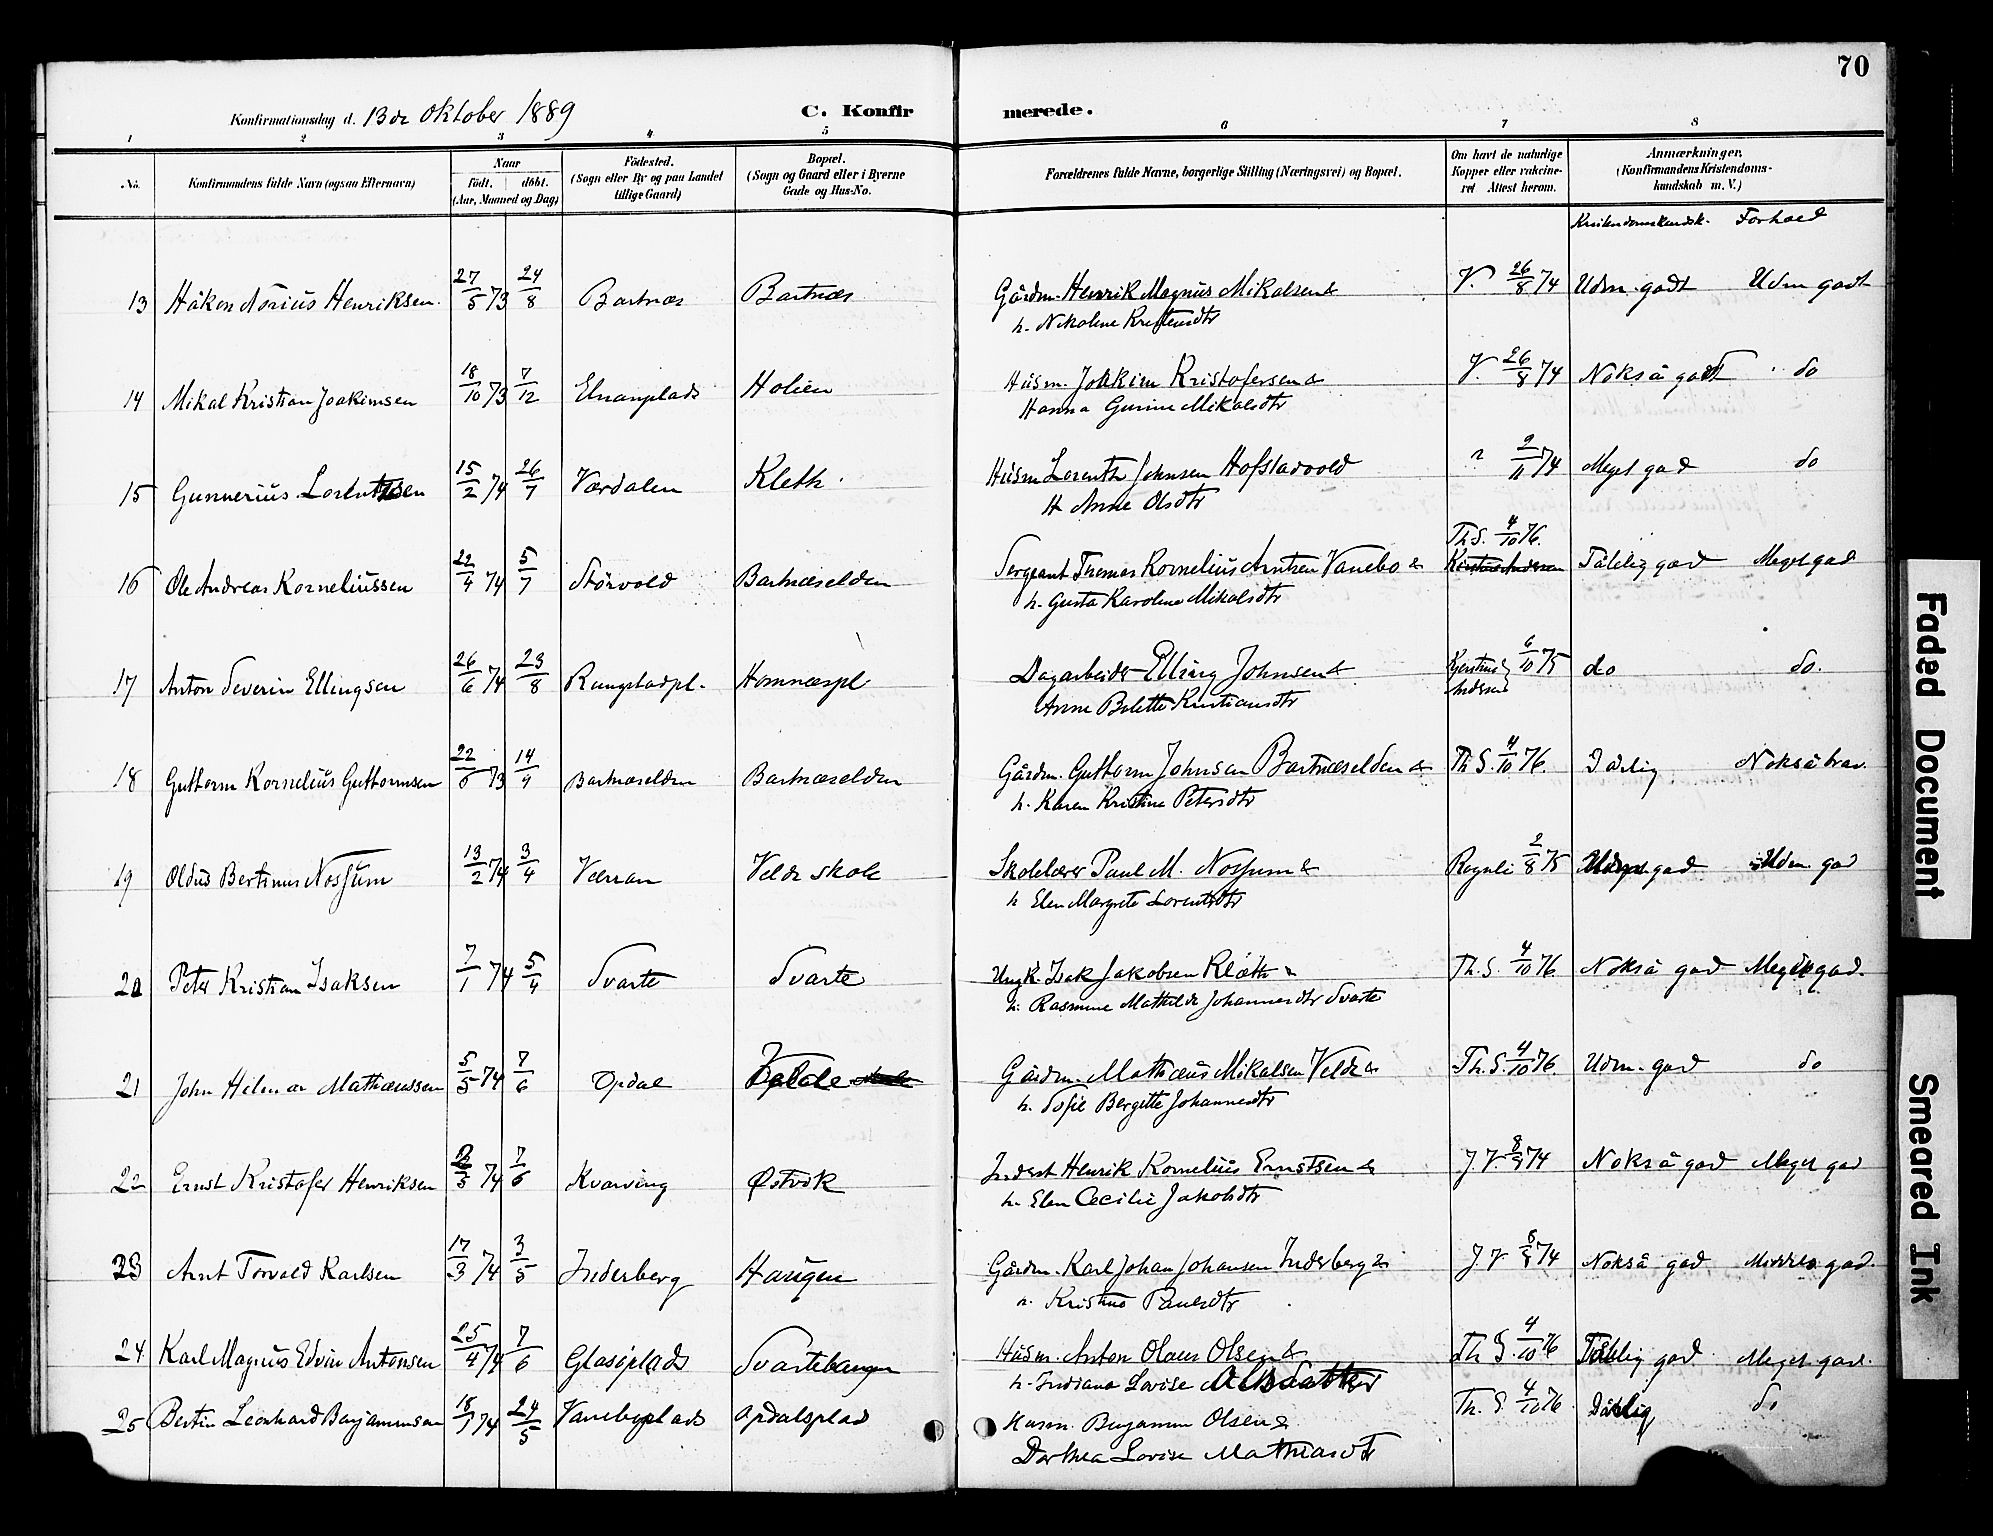 70
Konfirmationsdag d. 13de Oktober 1889 C. Konfirmerede.
1 2 3 4 5 6 7 8
No. Konfirmandens fulde Navn (ogsaa Efternavn) Naar født. døbt. (Aar, Maaned og Dag) Fødested. (Sogn eller By og paa Landet tillige Gaard) Bopæl. (Sogn og Gaard eller i Byerne Gade og Hus-No. Forældrenes fulde Navne, borgerlige Stilling (Næringsvei) og Bopæl. Om havt de naturlige Kopper eller vaccineret Attest herom. Anmærkninger. (Konfirmandens Kristendomskundskab m. V.)
Kristendomskundsk. Forhold
13 Håkon Nórius Henriksen 27/5 73 24/8 Bartnæs Bartnæs Gårdm. Henrik Magnus Mikalsen &
h. Nikoline Kristensdtr V. 26/8 74 Udm. godt Udm godt
14 Mikal Kristian Joakimsen 18/10 73 7/12 Elnanplads Holien Husm. Joakim Kristofersen &
Hanna Gurine Mikalsdtr V. 26/8 74 Nokså godt do
15 Gunnerius Lorentsen 15/2 74 26/7 Værdalen Kleth Husm Lorents Johnsen Hofstadvold
H Anne Olsdtr 2/11 74 Meget god do
16 Ole Andreas Korneliussen 22/4 74 5/7 Störvold Bartnæselden Sergeant Thomas Kornelius Arntsen Vanebo &
h. Gusta Karoline Mikalsdtr Th. S. 4/10 76. Tålelig god Meget god
17 Anton Severin Ellingsen 26/6 74 23/8 Rungstadpl. Homnæspl Dagarbeider Elling Johnsen &
Anne Beletta Kristiansdtr 6/10 75 do do.
18 Guttorm Kornelius Guttormsen 22/6 73 14/9 Bartnæselden Bartnæselden Gårdm. Guttorm Johnsen Bartnæselden &
h. Karen Kristine Petersdtr Th S. 4/10 76. Dårlig Nokså brav
19 Oldus Bertinus Nossum 13/2 74 3/4 Værran Velde skole Skolelærer Paul M. Nossum &
h Elen Margrete Lorentsdtr Rognli 2/8 75 god Udm. god
20 Peter Kristian Isaksen 7/1 74 5/4 Svarte Svarte Ungk. Isak Jakobsen Klæth &
h. Rasmine Mathilde Johannesdtr Svarte Th. S. 4/10 76 Nokså god Meget god.
21 John Hilmar Mathæussen 5/5 74 7/6 Opdal Velde Gårdm. Mathæus Mikalsen Velde &
h. Sofie Bergitte Johannesdtr Th. S. 4/10 76. Udm. god do
22 Ernst Kristofer Henriksen 2/5 74 7/6 Kvarving Østvik Inderst Henrik Kornelius Ernstsen &
h. Elen Cecilie Jakobsdtr J. V. 8/9 74 Nokså god Meget god
23 Arnt Torvald Karlsen 17/3 74 3/5 Inderberg Haugen Gårdm. Karl Johan Johansen Inderberg &
h. Kristine Paulsdtr J V 8/9 74 Nokså god Middels god.
24 Karl Magnus Edvin Antonsen 25/4 74 7/6 Glasøplads Svartebangen Husm. Anton Olaus Olsen &
h. Indiana Lovise Th S. 4/10 76 Tålelig god Meget god.
25 Bertin Leonhard Benjaminsen 18/3 74 24/5 Vaneboplads Opdalsplad Husm. Benjamin Olsen &
Dorthea Lovise Mathiasdtr Th. S. 4/10 76. Dårlig do
Faded Document
Smeared Ink